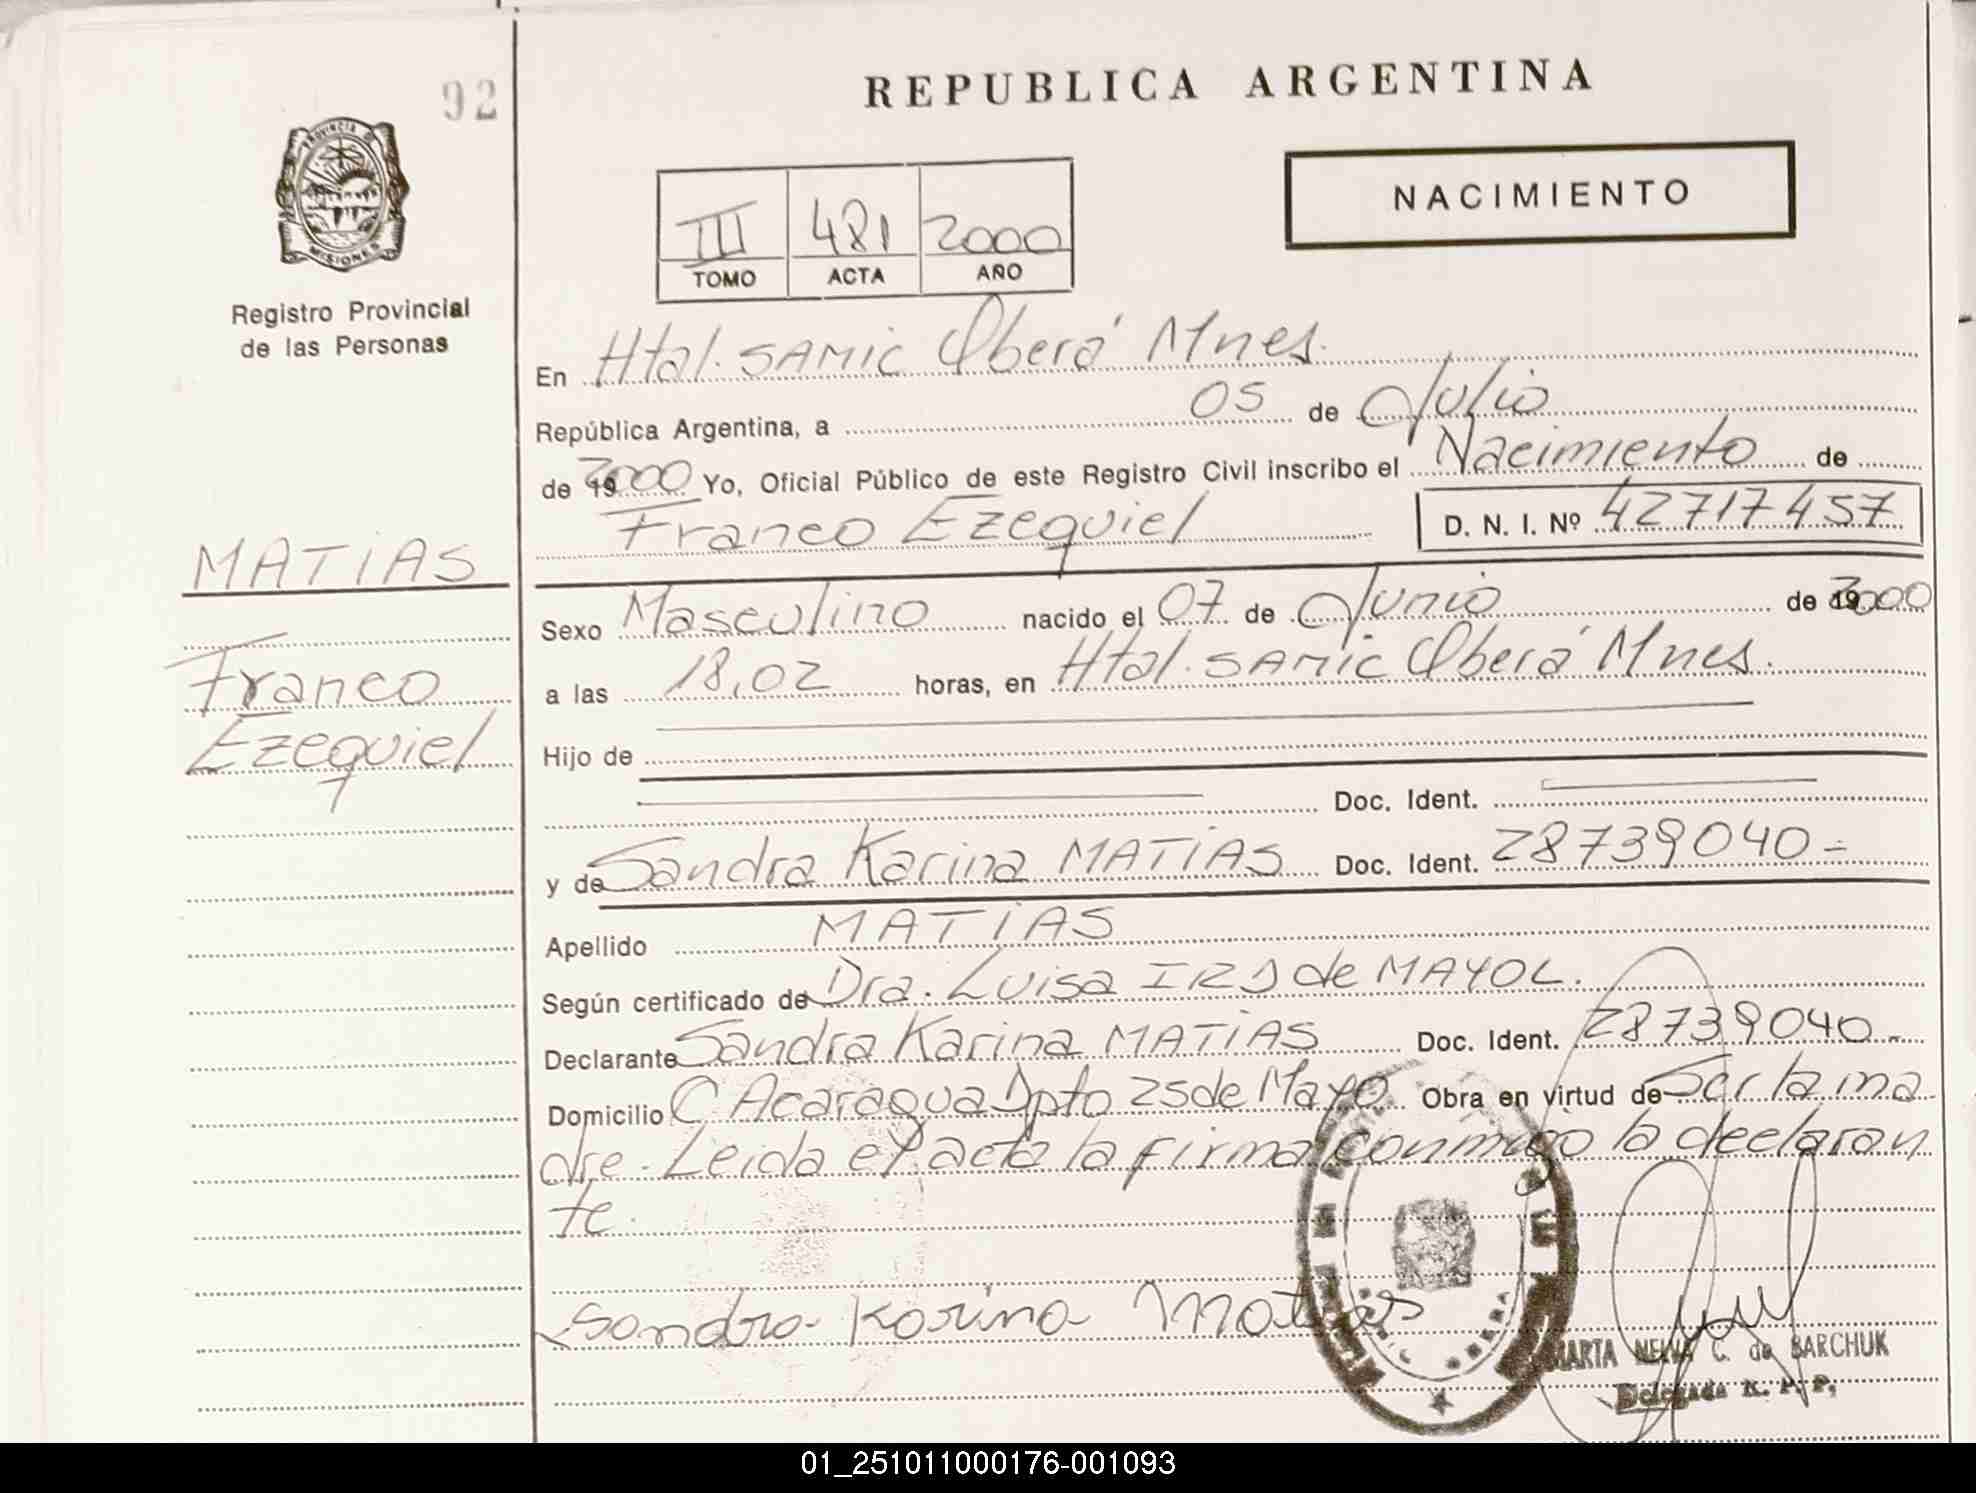 92
REPUBLICA ARGENTINA
PROVINCIA DE
MISIONES
Registro Provincial
de las Personas
NACIMIENTO
III 481 2000
TOMO ACTA AÑO
En Htal. SAMIC Oberá Mnes.
República Argentina, a 05 de Julio
de 2000 Yo, Oficial Público de este Registro Civil inscribo el Nacimiento de
Franco Ezequiel D. N. I. Nº 42717457
MATIAS
Franco
Ezequiel
Sexo Masculino nacido el 07 de Junio de 2000
a las 18,02 horas, en Htal. SAMIC Oberá Mnes.
Hijo de
Doc. Ident.
y de Sandra Karina MATIAS Doc. Ident. 28739040=
Apellido MATIAS
Según certificado de Dra. Luisa de MAYOL.
Declarante Sandra Karina MATIAS Doc. Ident. 28739040-
Domicilio C. Acaragua Dpto 25 de Mayo Obra en virtud de Ser la ma
dre. Leida el acta la firma conmigo la declaran
te.
Sandra Karina Matias
MARTA NELVA C. de BARCHUK
Delegada R. P. P.
01_251011000176-001093